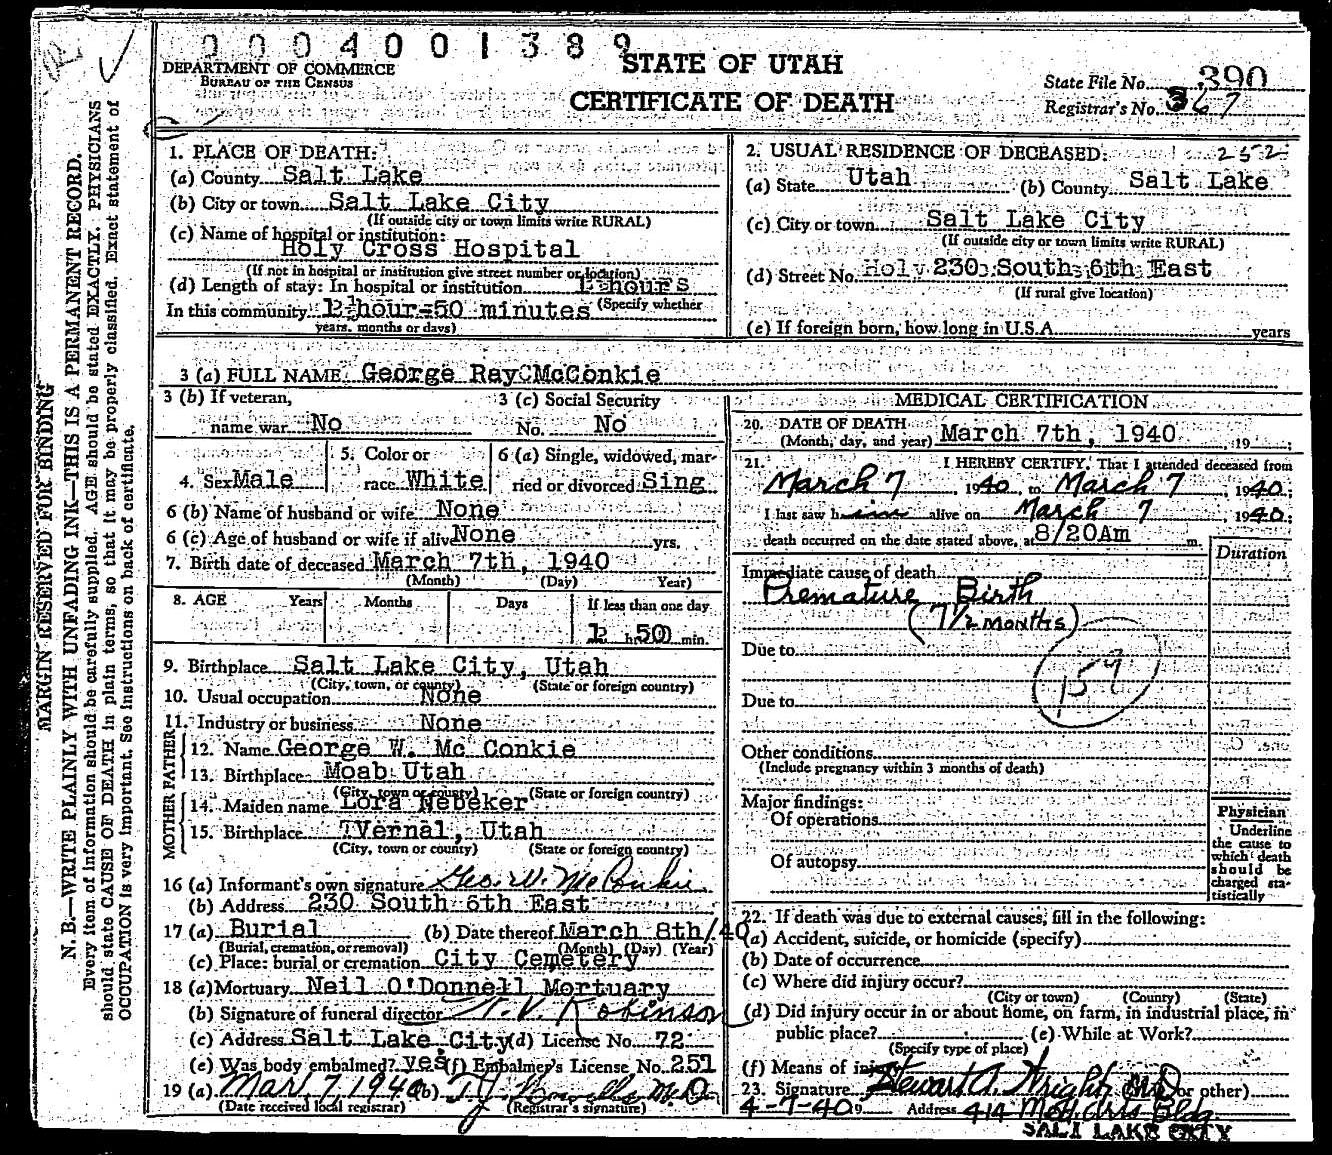 0 0 0 4 0 0 1 3 8 9
DEPARTMENT OF COMMERCE
BUREAU OF THE CENSUS
STATE OF UTAH
CERTIFICATE OF DEATH
State File No. 390
Registrar's No. 367
MARGIN RESERVED FOR BINDING
N. B.—WRITE PLAINLY WITH UNFADING INK—THIS IS A PERMANENT RECORD.
Every item of information should be carefully supplied. AGE should be stated EXACTLY. PHYSICIANS
should state CAUSE OF DEATH in plain terms, so that it may be properly classified. Exact statement of
OCCUPATION is very important. See instructions on back of certificate.
1. PLACE OF DEATH:
(a) County Salt Lake
(b) City or town Salt Lake City
(If outside city or town limits write RURAL)
(c) Name of hospital or institution:
Holy Cross Hospital
(If not in hospital or institution give street number or location)
(d) Length of stay: In hospital or institution hours
In this community hour-50 minutes (Specify whether
years, months or days)
2. USUAL RESIDENCE OF DECEASED: 252
(a) State Utah (b) County Salt Lake
(c) City or town Salt Lake City
(If outside city or town limits write RURAL)
(d) Street No. Holy 230 South 6th East
(If rural give location)
(e) If foreign born, how long in U.S.A. years
3 (a) FULL NAME George Ray McConkie
3 (b) If veteran,
name war No
3 (c) Social Security
No. No
4. Sex Male
5. Color or
race White
6 (a) Single, widowed, mar-
ried or divorced Sing
6 (b) Name of husband or wife None
6 (c) Age of husband or wife if alive None yrs.
7. Birth date of deceased March 7th, 1940
(Month) (Day) Year)
8. AGE Years Months Days If less than one day
hr. 50 min.
9. Birthplace Salt Lake City, Utah
(City, town, or county) (State or foreign country)
10. Usual occupation None
11. Industry or business None
FATHER
12. Name George W. Mc Conkie
13. Birthplace Moab Utah
(City, town or county) (State or foreign country)
MOTHER
14. Maiden name Lora Nebeker
15. Birthplace Vernal, Utah
(City, town or county) (State or foreign country)
16 (a) Informant's own signature Geo. W. McConkie
(b) Address 230 South 6th East
17 (a) Burial (b) Date thereof March 8th/40
(Burial, cremation, or removal) (Month) (Day) (Year)
(c) Place: burial or cremation City Cemetery
18 (a) Mortuary Neil O'Donnell Mortuary
(b) Signature of funeral director N. V. Robinson
(c) Address Salt Lake City (d) License No. 72
(e) Was body embalmed? yes (f) Embalmer's License No. 251
19 (a) Mar. 7, 1940 (b) M.D.
(Date received local registrar) (Registrar's signature)
MEDICAL CERTIFICATION
20. DATE OF DEATH
(Month, day, and year) March 7th, 1940 , 19 ;
21. I HEREBY CERTIFY, That I attended deceased from
March 7 , 1940, to March 7 , 1940;
I last saw him alive on March 7 , 1940;
death occurred on the date stated above, at 8/20Am m.
Duration
Immediate cause of death
Premature Birth
(7 1/2 months)
Due to
159
Due to
Other conditions
(Include pregnancy within 3 months of death)
Major findings:
Of operations
Of autopsy
Physician
Underline
the cause to
which death
should be
charged sta-
tistically
22. If death was due to external causes, fill in the following:
(a) Accident, suicide, or homicide (specify)
(b) Date of occurrence
(c) Where did injury occur?
(City or town) (County) (State)
(d) Did injury occur in or about home, on farm, in industrial place, in
public place? (e) While at Work?
(Specify type of place)
(f) Means of injury
23. Signature Stewart A. Wright MD or other)
4-7-40 Address 414 Med Arts Bldg.
SALT LAKE CITY